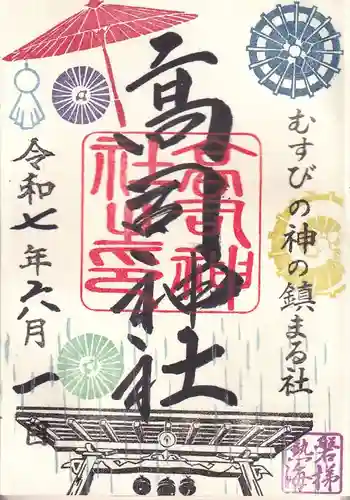 むすびの神の鎮まる社
高司神社
高司神
社之印
令和七年六月一日
磐梯
熱海